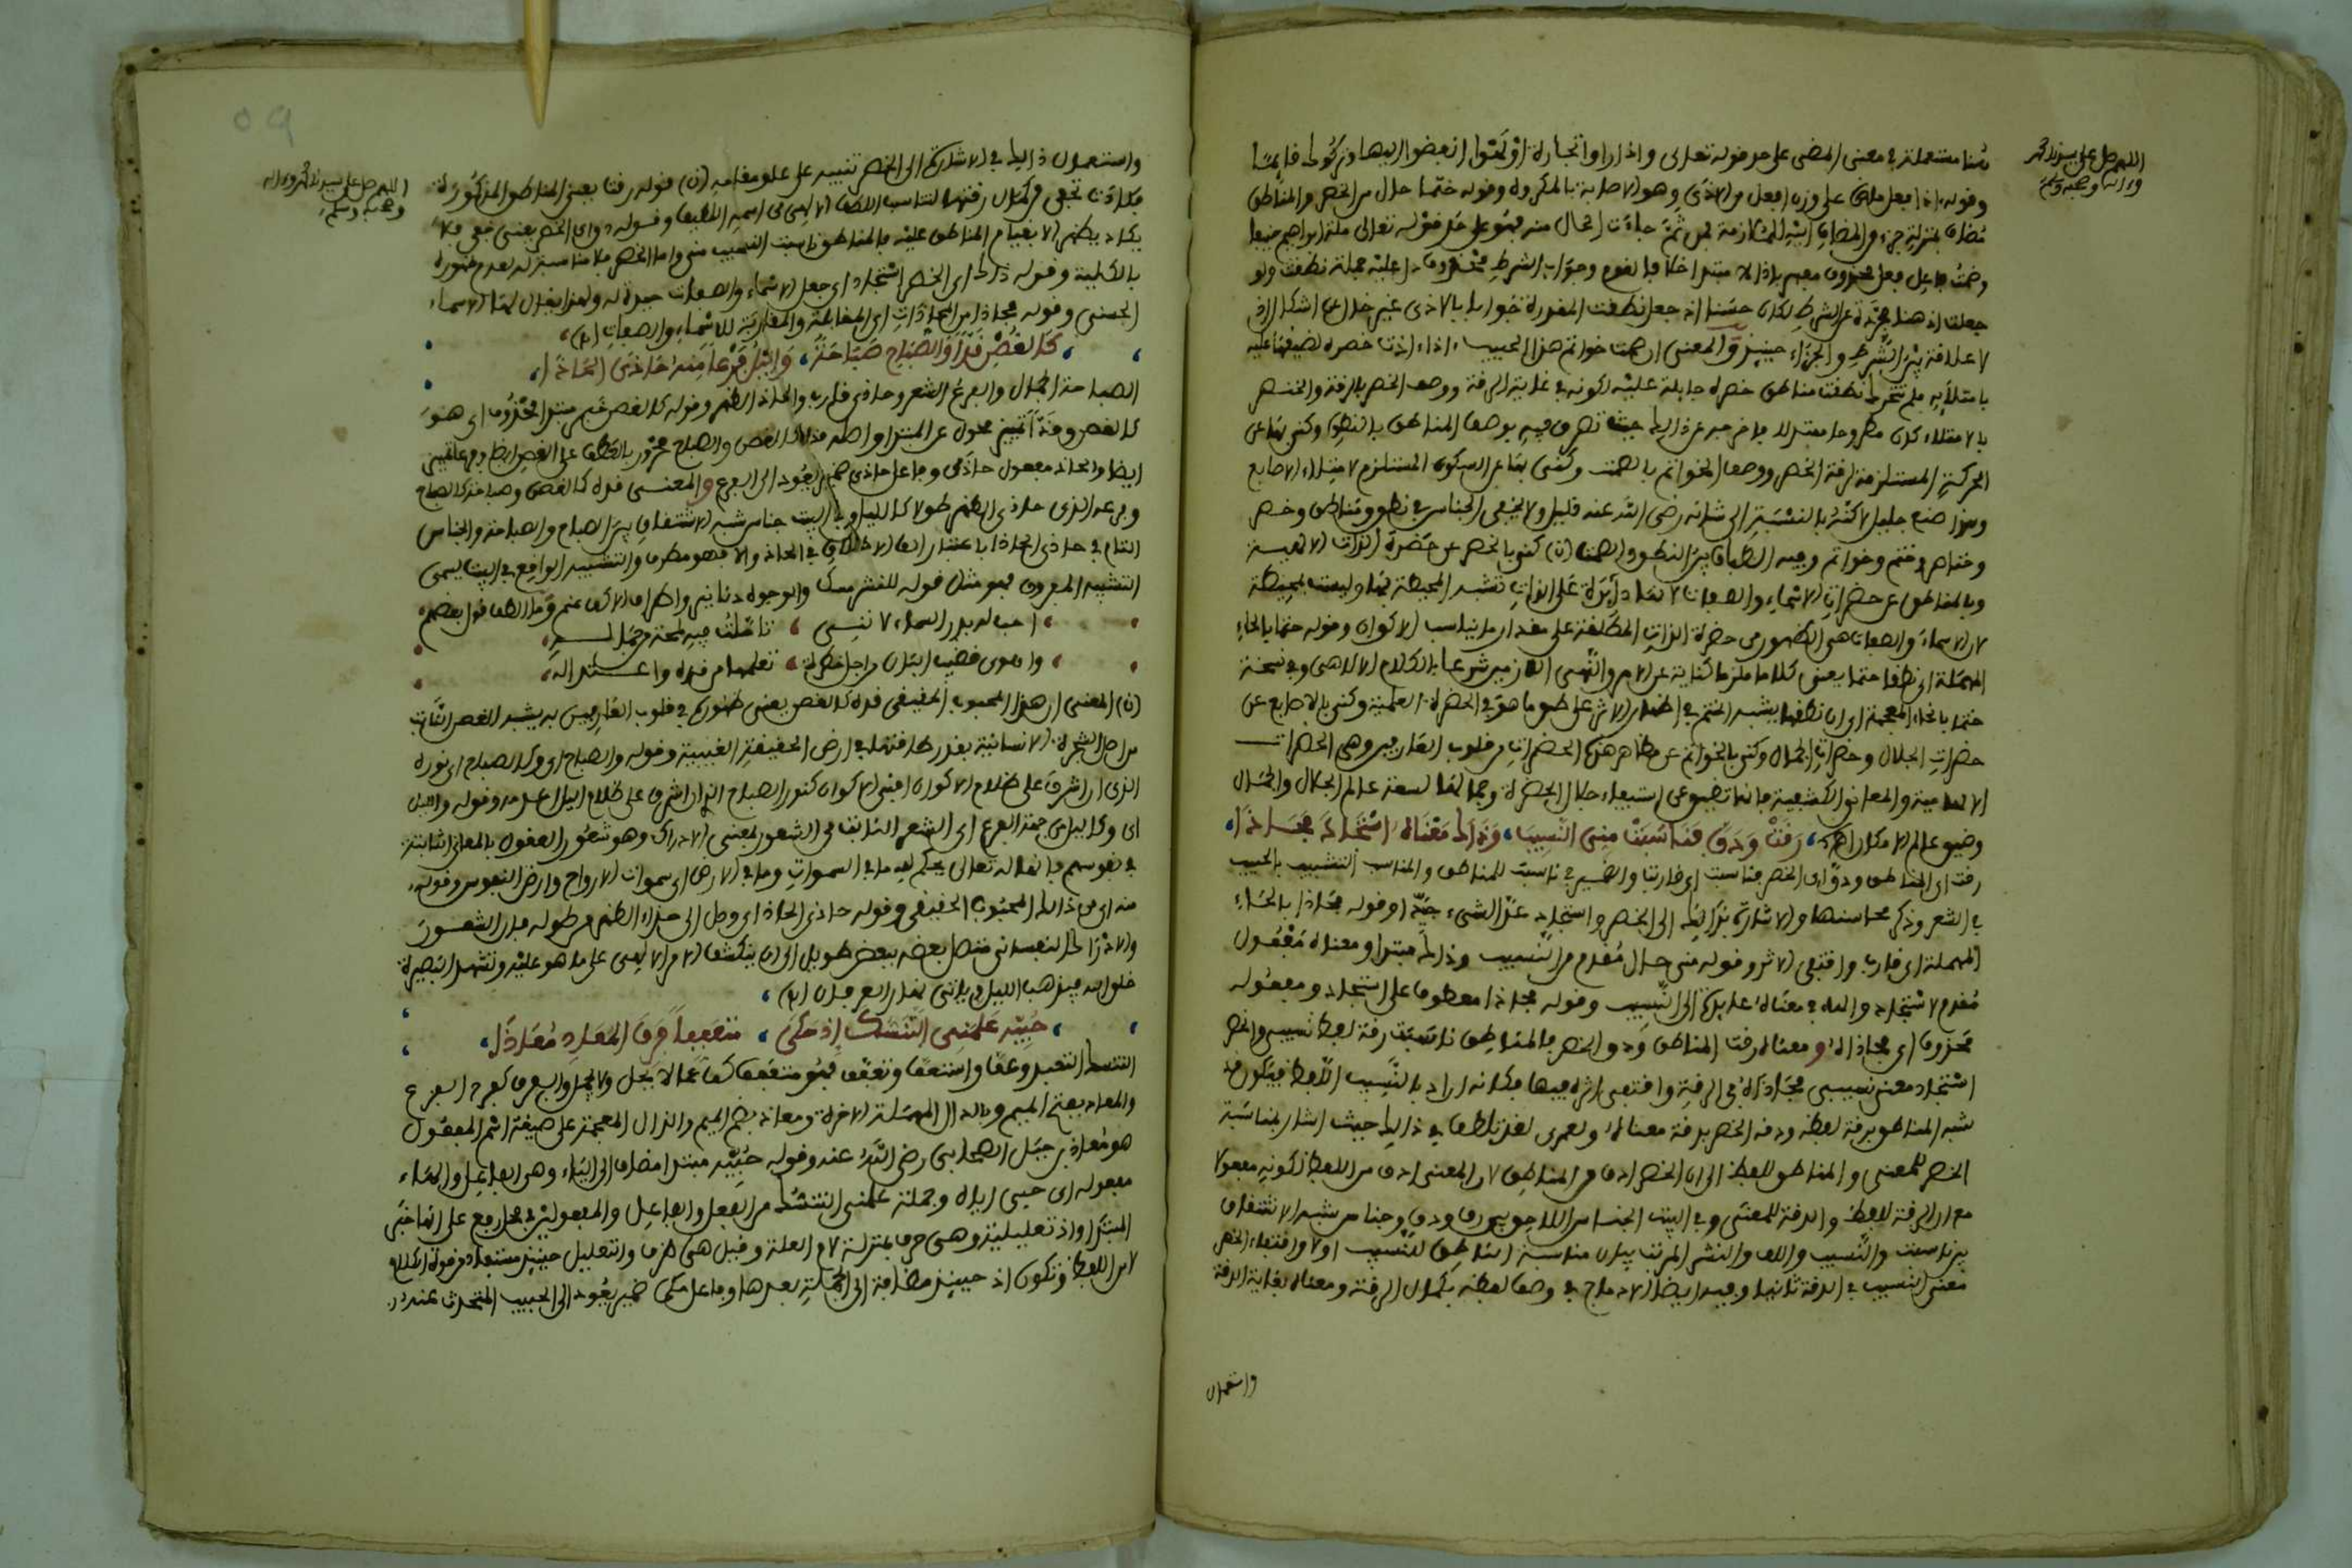 اللهم صل على سيدنا محمد
وءاله وصحبه وسلم
هنا مستعملة في معنى المضي على حد قوله تعالى واذا راوا تجارة او لهوا انفضوا اليها وتركوك قائما
وقوله اذا فعل ماض على وزن افعل والاذى وهو الاصابة بالمكروه وقوله ختما حال من الخصر والمناطق
مضاف بمنزلة جزء المضاف اليه للملازمة فمن ثم جاءت الحال منه فهو على حد قوله تعالى ملة ابراهيم حنيفا
وصمت فاعل فعل محذوف معهم باذا لا مبتدا خلافا لقوم وجواب الشرط محذوف دل عليه جملة نطقت ولو
جعلت اذ هنا مجردة عن الشرط لكان حسنا اذ جعل نطقت المقدرة جوابا بالاذى غير خال عن اشكال اذ
لا علاقة بين الشرط والجزاء حينئذ والمعنى ان صمت خواتم هذا الحبيب اذا اذت خصره لضيقها عليه
بامتلائه فلم تتحرك نطقت مناطق خصره جايلة عليه لكونه في غاية الرقة ووصف الخصر بالرقة والخنصر
بالامتلاء كان مطروحا مبتذلا فاخرجه عن ذلك حيث تصرف فيه بوصف المناطق بالنطق وكنى بها عن
الحركة المستلزمة لرقة الخصر ووصف الخواتم بالصمت وكنى بها عن السكون المستلزم لامتلاء الاصابع
وهذا صنع جليل لاكنه بالنسبة الى شانه رضي الله عنه قليل ولا يخفى الجناس في نطق ومناطق وخصر
وخناصر وختم وخواتم وفيه الطباق بين النطق والصمت (ن) كنى بالخصر عن حضرة الذات الالهية
وبالمناطق عن حضرات الاسماء والصفات لانها دايرة على الذات تشبه المحيطة بها وليست بمحيطة
لان الاسماء والصفات هي الظهور من حضرة الذات المطلقة على مقدار ما يناسب الاكوان وقوله حتما بالحاء
المهملة اي نطقا حتما يعني كلاما ملزما كناية عن الامر والنهي اللازمين شرعا بالكلام الالهي وفي نسخة
ختما بالخاء المعجمة اي ان نطقها يشبه الختم في اظهار الاثر على طبق ما هو في الحضرة العلمية وكنى بالاصابع عن
حضرات الجلال وحضرات الجمال وكنى بالخواتم عن مظاهر هذه الحضرات من قلوب العارفين وهي الحضرات
الالهامية والمعاني الكشفية فانها تضيق عن استيفاء جلال الحضرة وجمالها لسعة عالم الجلال والجمال
وضيق عالم الامكان اهـ رَقَّتْ وَدَقَّ فَنَاسَبَتْ مِنِّي النَّسِيبَ، وَذَاكَ مَعْنَاهُ اسْتَجَادَ فَحَاذَا،
رقت اي المناطق ودق اي الخصر فناسبت اي قاربت والضمير في ناسبت للمناطق والمناسب التشبيب بالحبيب
في الشعر وذكر محاسنها والاشارة بذلك الى الخصر واستجاد عد الشيء جيدا وقوله فحاذا بالحاء
المهملة اي قارب واقتفى الاثر وقوله مني حال مقدم من النسيب وذاك مبتدا ومعناه مفعول
مقدم لاستجاد والهاء في معناه عايدة الى النسيب وقوله فحاذا معطوف على استجاد ومفعوله
محذوف اي فحاذاه ومعناه رقت المناطق ودق الخصر فالمناطق ناسبت رقة لفظ نسيبي والخصر
استجاد معنى نسيبي فحاذاه في الرقة واقتفى اثره فيها فكانه اراد بالنسيب اللفظ فيكون قد
شبه المناطق برقة لفظه ودقة الخصر بدقة معناه ولعمري لقد تلطف في ذلك حيث اشار بمناسبة
الخصر للمعنى والمناطق للفظ الى ان الخصر ادق من المناطق لان المعنى ادق من اللفظ لكونه مفعولا
مع ان الرقة للفظ والدقة للمعنى وفي البيت الجناس اللاحق بين رق ودق وجناس شبه الاشتقاق
بين ناسبت والنسيب واللف والنشر المرتب ببيان مناسبة المناطق للنسيب اولا واقتفاء الخصر
معنى النسيب في الدقة ثانيا وفيه ايضا الادماج في وصف لفظه بكمال الرقة ومعناه بغاية الدقة
واستعمال
٥٩
اللهم صل على سيدنا محمد وءاله
وصحبه وسلم
واستعمال ذلك في الاشارة الى الخصر تنبيه على علو مقامه (ن) قوله رقت يعني المناطق المذكورة
فكادت تخفى من كمال رقتها لتناسب اللطف الالهي من اسمه اللطيف وقوله ودق اي الخصر يعني خفي فلا
يكاد يظهر الا بقيام المناطق عليه فالمناطق ناسبت النسيب مني واما الخصر فلا مناسبة له لعدم ظهوره
بالكلية وقوله ذاك اي الخصر استجاد اي جعل الاسماء والصفات جيدة له ولهذا يقال لها الاسماء
الحسنى وقوله فحاذا من المحاذات اي المقابلة والمقاربة للاسماء والصفات (ا)
كَالْغُصْنِ قَدًّا وَالصَّبَاحِ صَبَاحَةً، وَاللَّيْلِ فَرْعًا مِنْهُ حَاذَى الْحَاذَا،
الصباحة الجمال والفرع الشعر وحاذى قارب والحاذ الظهر وقوله كالغصن خبر مبتدا محذوف اي هو
كالغصن وقدا تمييز محول عن المبتدا واصله قده كالغصن والصباح مجرور بالعطف على الغصن ايضا وفرعا تمييز
ايضا والحاذ مفعول حاذى وفاعل حاذى ضمير يعود الى الفرع والمعنى قده كالغصن وصباحته كالصباح
وفرعه الذي حاذى الظهر طولا كالليل وفي البيت جناس شبه الاشتقاق بين الصباح والصباحة والجناس
التام في حاذى الحاذا باعتبار الف الاطلاق في الحاذ والا فهو مطرف والتشبيه الواقع في البيت يسمى
التشبيه المفروق فهو مثل قوله للنشر مسك والوجوه دنانير واطراف الاكف عنم ومن اللطف قول بعضهم
احب له بدر السماء لانني، تاملت فيه لمحة من جماله،
واهوى قضيب البان من اجل خطرة، تعلمها من قده واعتداله،
(ن) المعنى ان هذا المحبوب الحقيقي قده كالغصن يعني ظهوره في قلوب العارفين به يشبه الغصن النابت
من اصل الشجرة الانسانية بقدر طاقتها في ارض الحقيقة الغيبية وقوله والصباح اي وكالصباح اي نوره
الذي ان اشرق على ظلام الاكوان افنى الاكوان كنور الصباح اذا اشرق على ظلام الليل اعدمه وقوله والليل
اي وكالليل من جهة الفرع اي الشعر النابت من الشعور بمعنى الادراك وهو شعور العقول بالمعاني الثابتة
في نفوسهم قال الله تعالى يحكم ما في السموات وما في الارض اي سموات الارواح وارض النفوس وقوله
منه اي من ذلك المحبوب الحقيقي وقوله حاذى الحاذ اي وصل الى حذاء الظهر من طوله فان الشعور
والادراك النفساني متصل بعضه ببعض طويل الى ان ينكشف الامر الالهي على ما هو عليه وتشهد البصيرة
خلق الله فيذهب الليل وياتي نهار العرفان (ا)
حُبِّيهِ عَلَّمَنِي التَّنَسُّكَ إِذْ حَكَى، مُتَعَفِّفًا فَرَقَ الْمَعَادِ مُعَاذَا،
التنسك التعبد وعف واستعف وتعفف فهو متعفف كف عما لا يحل ولا يجمل والفرق كفرح الفزع
والمعاد بفتح الميم وبالدال المهملة الاخرة ومعاذ بضم الميم والذال المعجمة على صيغة اسم المفعول
هو معاذ بن جبل الصحابي رضي الله عنه وقوله حبيه مبتدا مضاف الى الياء وهي الفاعل والهاء
مفعوله اي حبي اياه وجملة علمني التنسك من الفعل والفاعل والمفعولين في محل رفع على انها خبر
المبتدا واذ تعليلية وهي حرف بمنزلة لام العلة وقيل هي ظرف والتعليل حينئذ مستفاد من قوة الكلام
لا من اللفظ وتكون اذ حينئذ مضافة الى الجملة بعدها وفاعل حكى ضمير يعود الى الحبيب المتحدث عنه